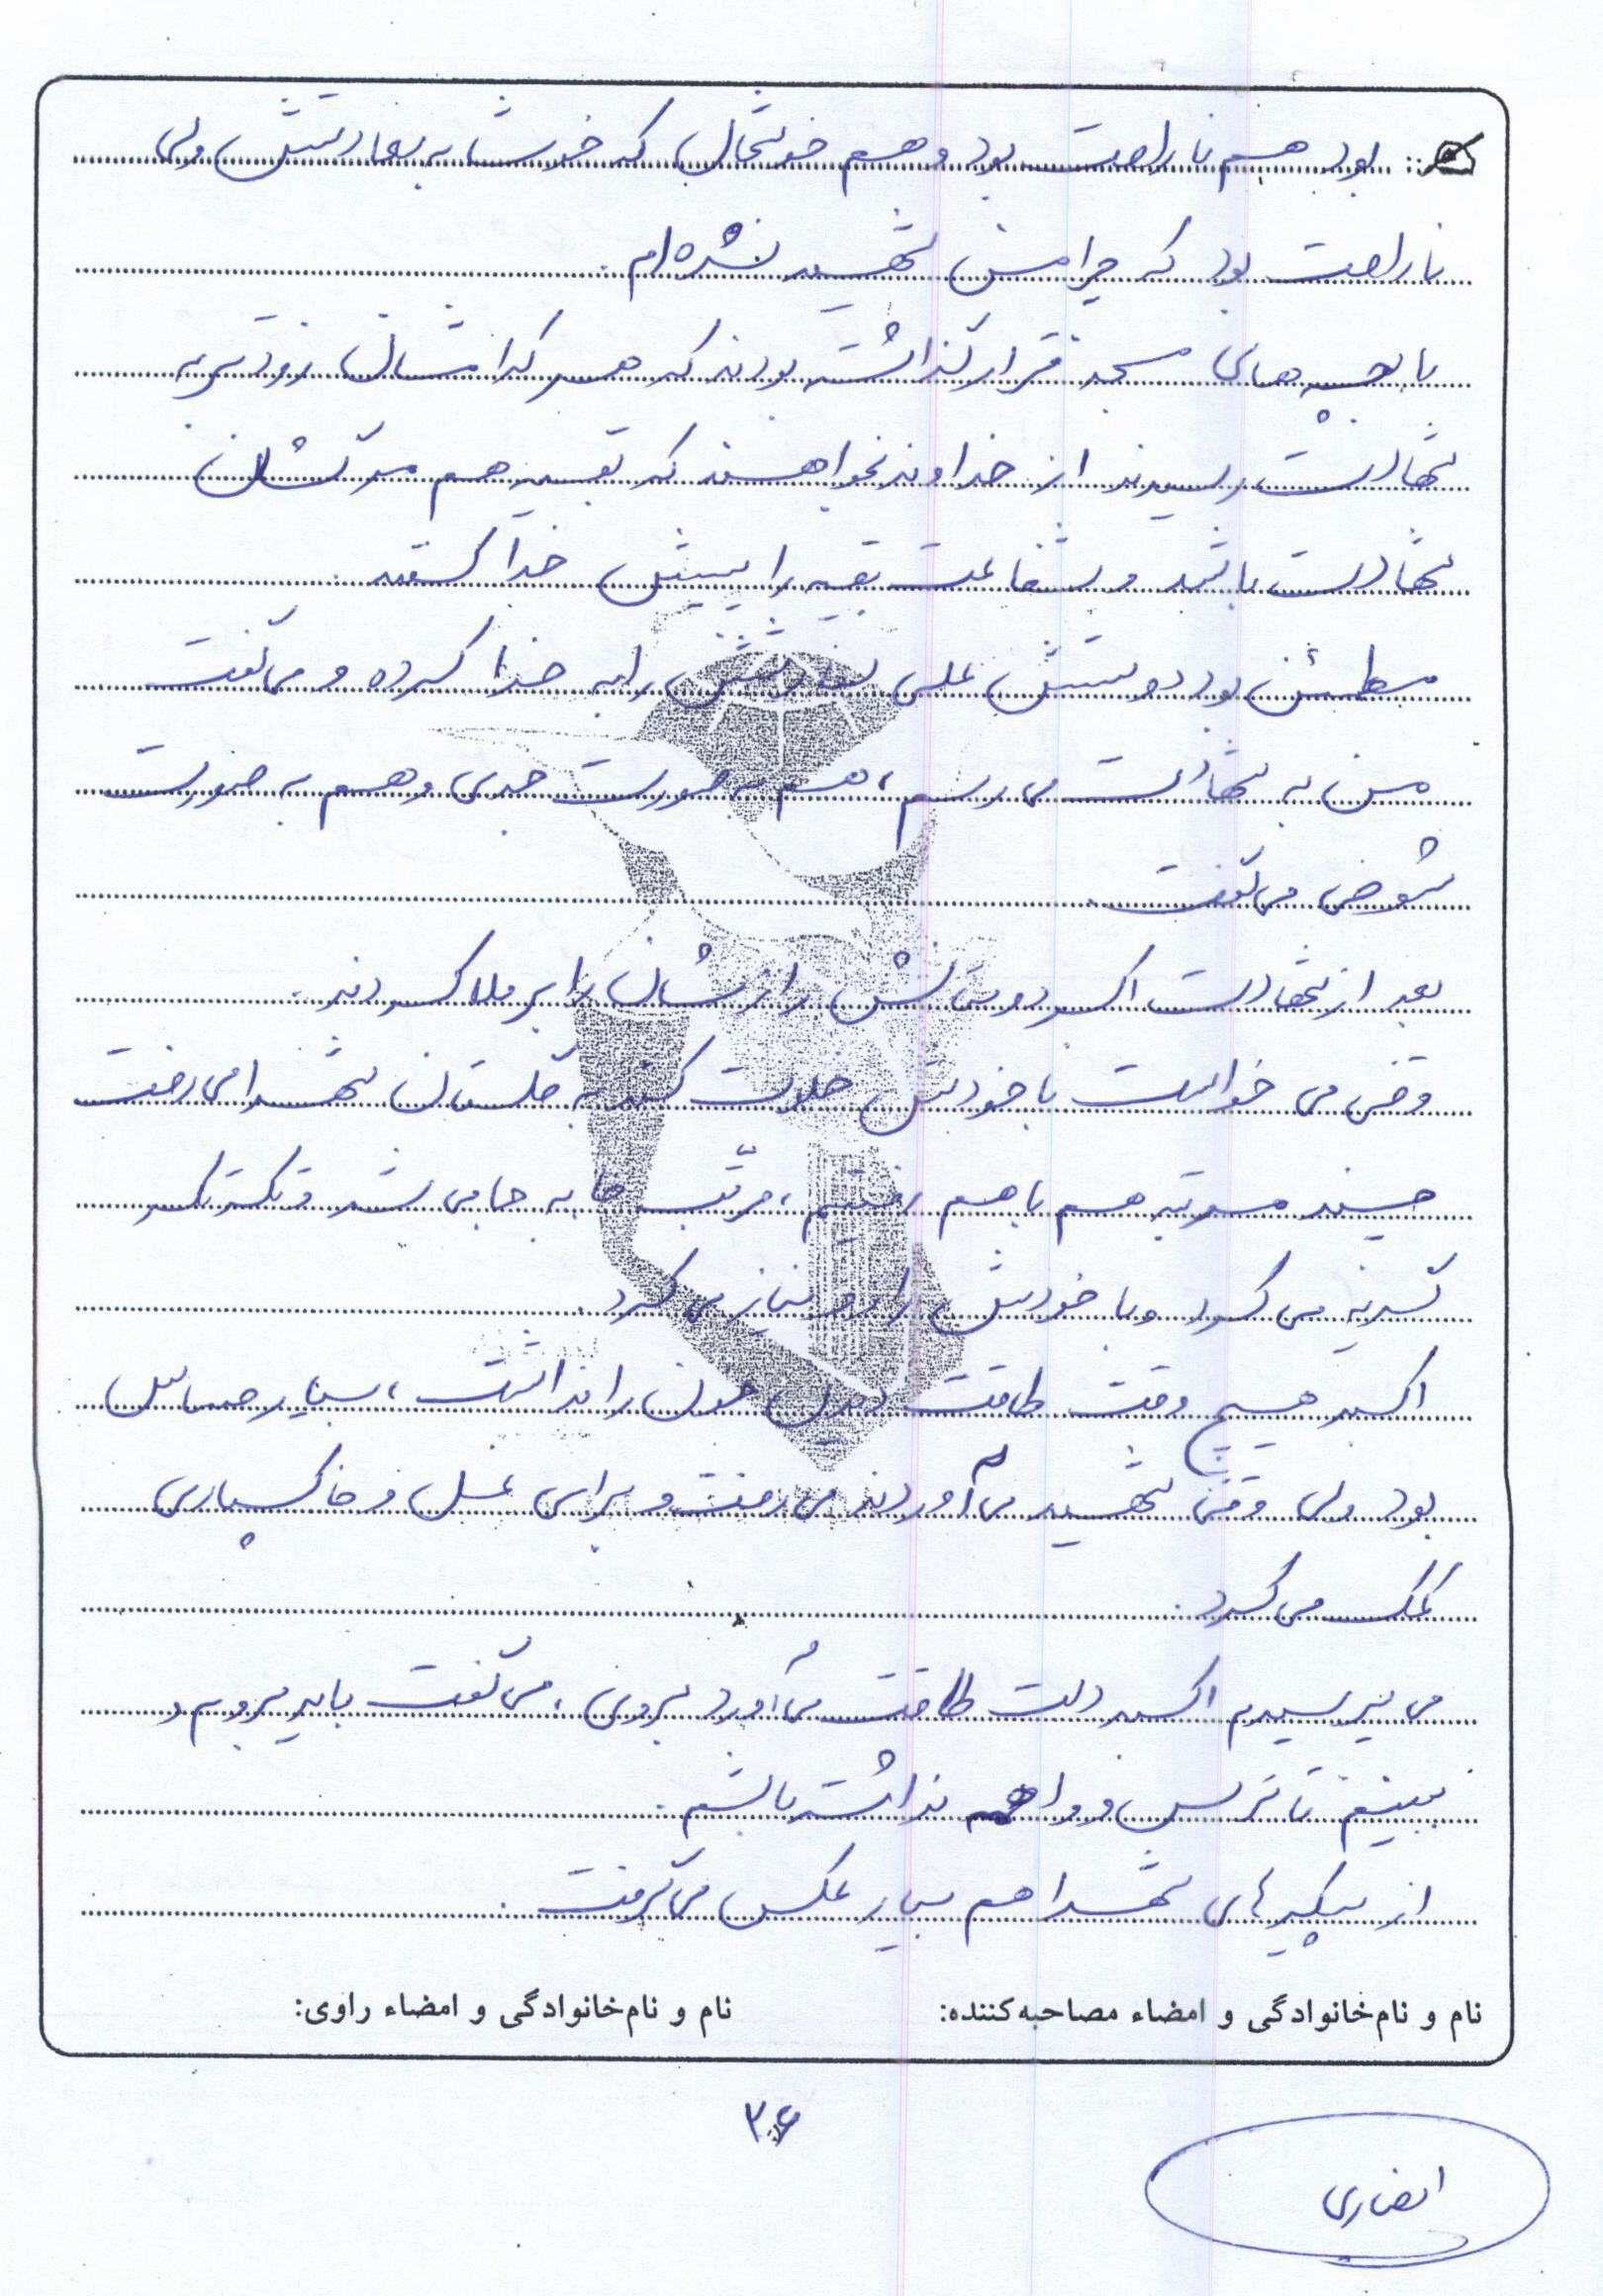 بود هم ناراحت بود و هم خوشحال که خوشا به سعادتش ولی
ناراحت بود که چرا من شهید نشده‌ام.
با بچه‌های مسجد قرار گذاشته بودند که هر کدامشان زودتر به
شهادت رسیدند از خداوند بخواهند که بقیه هم مرگشان
شهادت باشد و شفاعت بقیه را پیش خدا کنند.
مطمئن بود دوستش علی خودش را به خدا کرده و می‌گفت
من به شهادت می‌رسم، هم به صورت جدی و هم به صورت
شوخی می‌گفت.
بعد از شهادت اکبر دوستانش رازشان را برملا کردند.
وقتی می خواست با خودش خلوت کند به گلستان شهدا می‌رفت
چند مرتبه هم با هم رفتیم، مرتّب جا به جا می شد و تک تک
گریه می کرد و با خودش راز و نیاز می کرد.
اکبر هیچ وقت طاقت دیدن خون را نداشت، بسیار حساس
بود ولی وقتی شهید می‌آوردند می‌رفت و برای غسل و خاکسپاری
کمک می کرد.
می پرسیدم اکبر دلت طاقت می‌آورد بروی، می‌گفت باید بروم و
ببینم تا ترس و واهمه نداشته باشم.
از پیکرهای شهدا هم بسیار عکس می‌گرفت.
نام و نام‌خانوادگی و امضاء مصاحبه‌کننده: نام و نام‌خانوادگی و امضاء راوی:
۳۶
انصاری